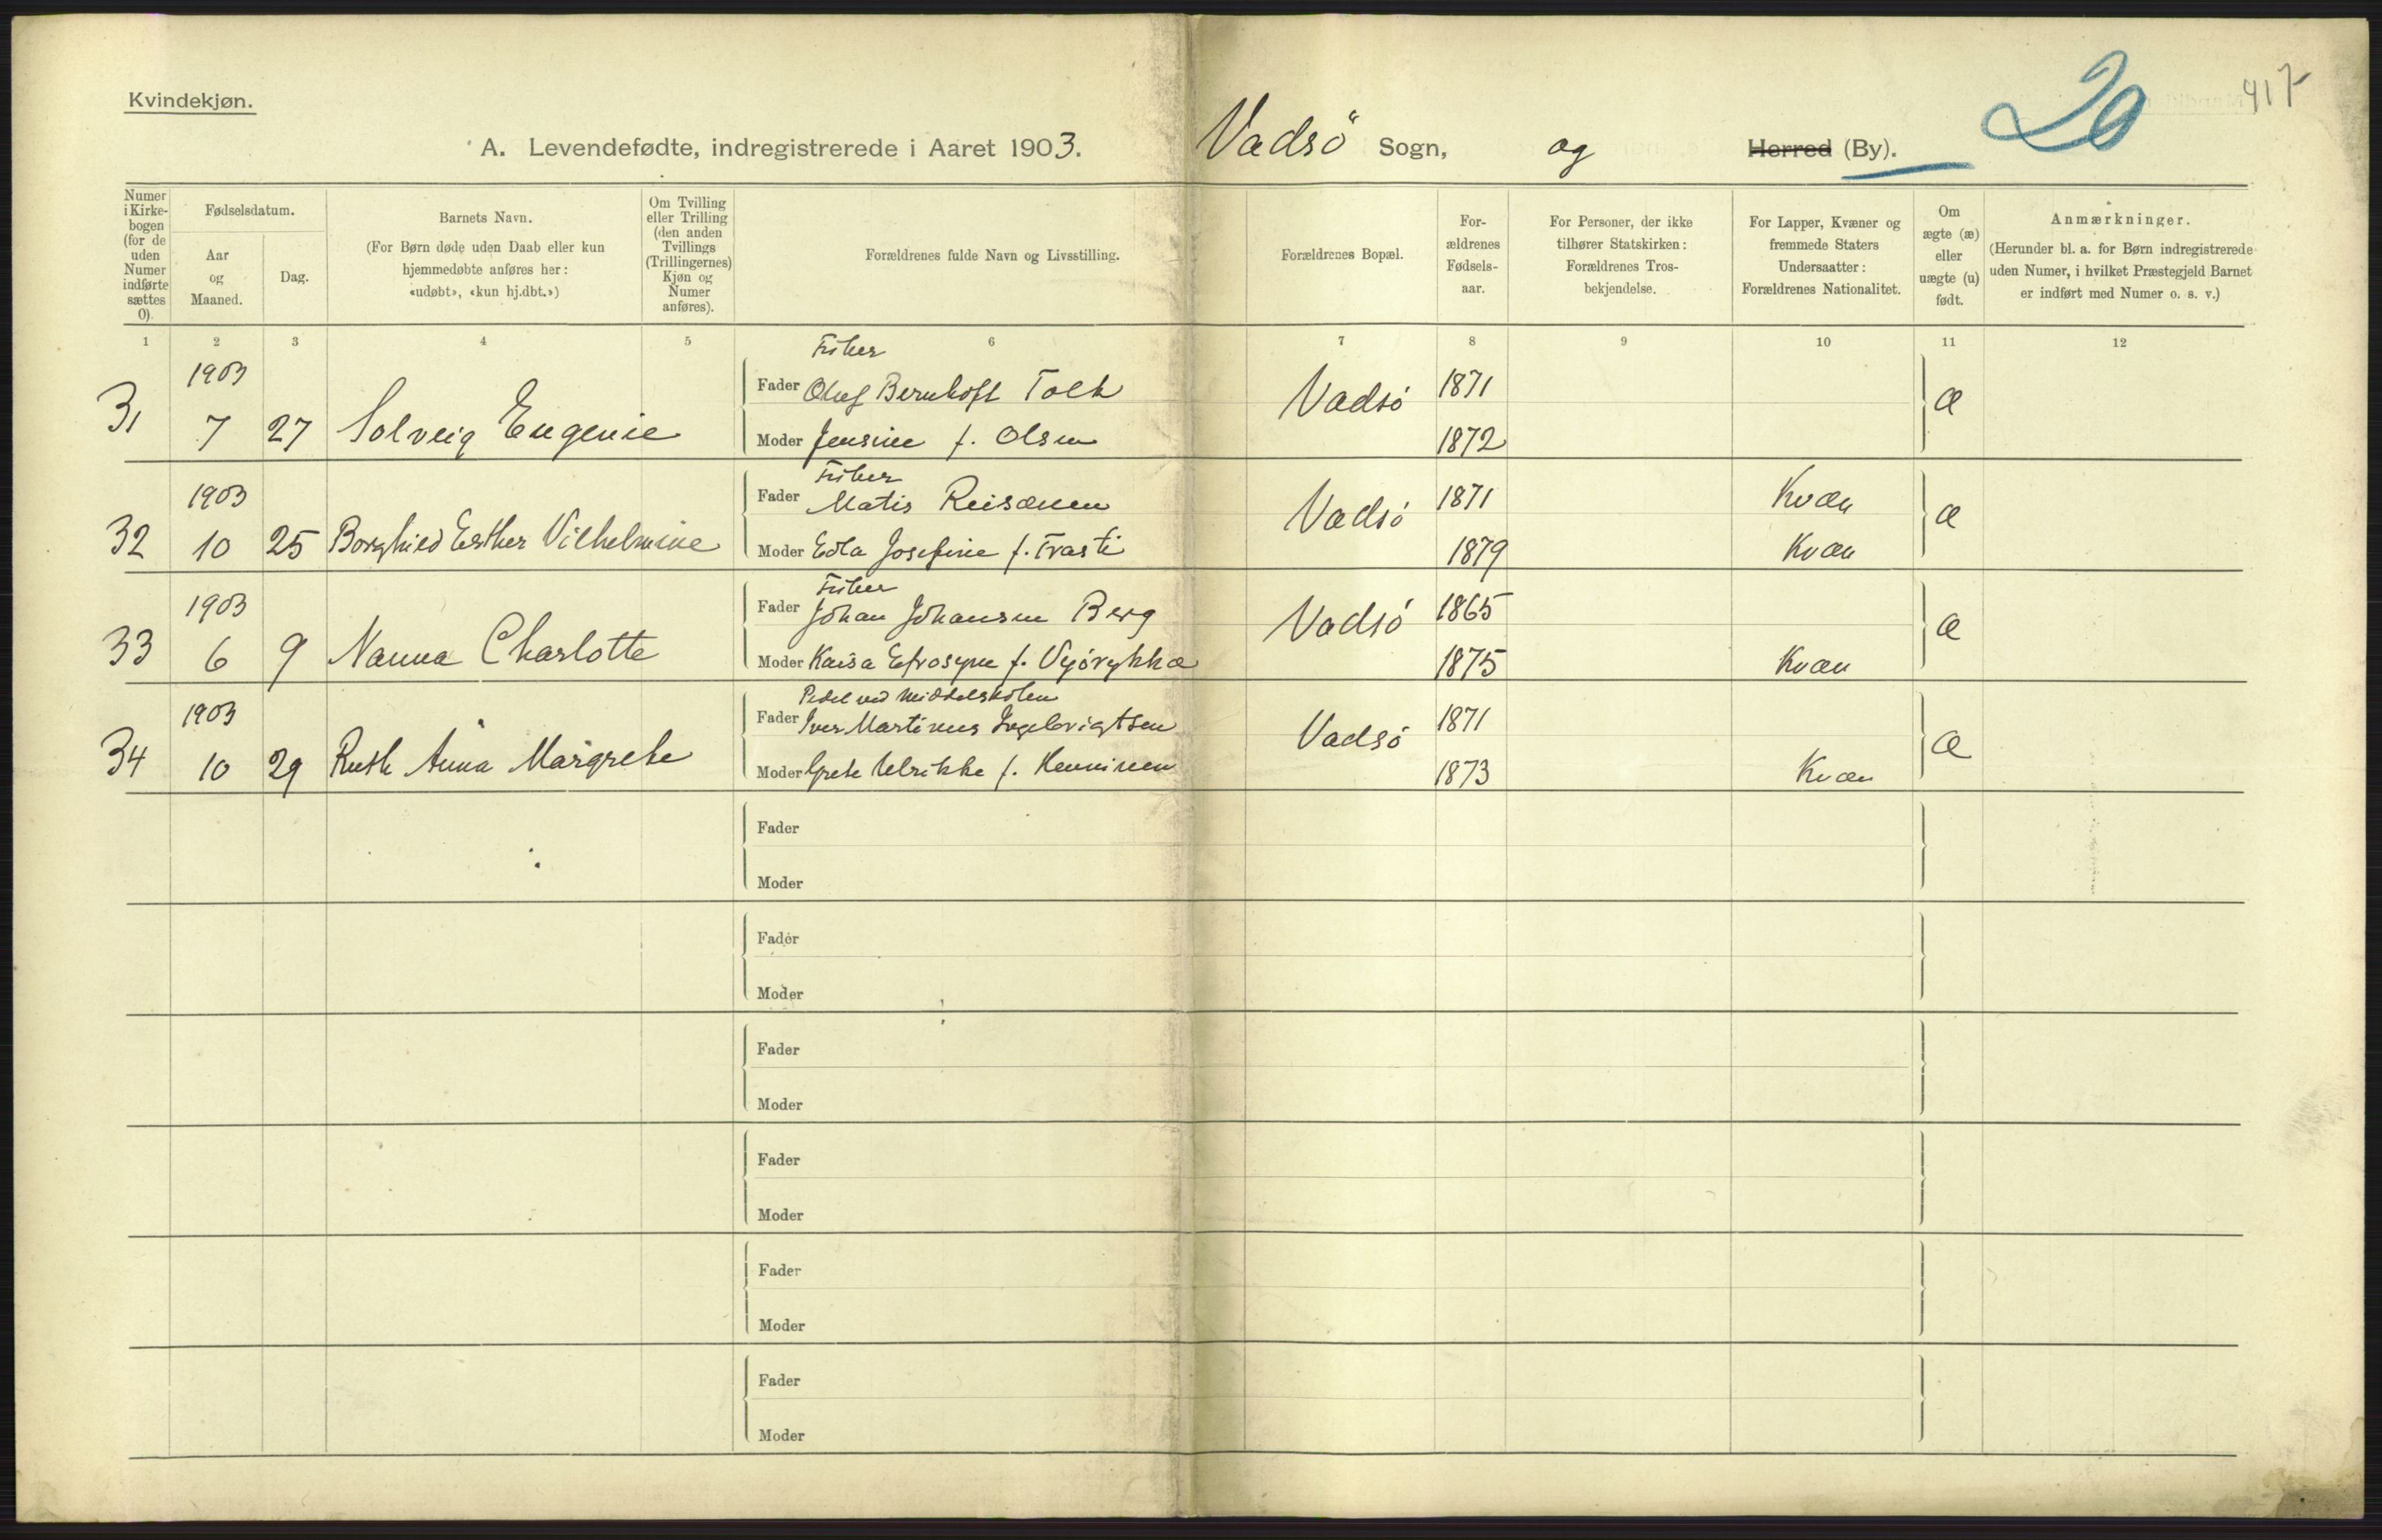 Kvindekjøn.
20
417
A. Levendefødte, indregistrerede i Aaret 1903.
Vadsö Sogn, og Herred (By).
Numer i Kirke-bogen (for de uden Numer indførte sættes 0).
Fødselsdatum.
Aar og Maaned.
Dag.
Barnets Navn.
(For Børn døde uden Daab eller kun
hjemmedøbte anføres her:
«udøbt», «kun hj.dbt.»)
Om Tvilling
eller Trilling
(den anden
Tvillings
(Trillingernes)
Kjøn og
Numer
anføres).
Forældrenes fulde Navn og Livsstilling.
Forældrenes Bopæl.
For-
ældrenes
Fødsels-
aar.
For Personer, der ikke
tilhører Statskirken:
Forældrenes Tros-
bekjendelse.
For Lapper, Kvæner og
fremmede Staters
Undersaatter:
Forældrenes Nationalitet.
Om
ægte (æ)
eller
uægte (u)
født.
Anmærkninger.
(Herunder bl. a. for Børn indregistrerede
uden Numer, i hvilket Præstegjeld Barnet
er indført med Numer o. s. v.)
1 2 3 4 5 6 7 8 9 10 11 12
Fisker
1903 Fader Oluf Bernhoft Tolk Vadsö 1871 æ
31 7 27 Solveig Eugenie Moder Jensine f. Olsen 1872
Fisker
1903 Fader Matis Reisænen Vadsö 1871 Kvæn æ
32 10 25 Borghild Esther Vilhelmine Moder Edla Josefine f. Trasti 1879 Kvæn
Fisker
1903 Fader Johan Johansen Berg Vadsö 1865 æ
33 6 9 Nanna Charlotte Moder Kaisa Efrosyne f. 1875 Kvæn
Pedel ved Middelskolen
1903 Fader Iver Martinus Ingebrigtsen Vadsö 1871 æ
34 10 29 Ruth Anna Margrete Moder Grete Ulrikke f. Henninen 1873 Kvæn
Fader
Moder
Fader
Moder
Fader
Moder
Fader
Moder
Fader
Moder
Fader
Moder